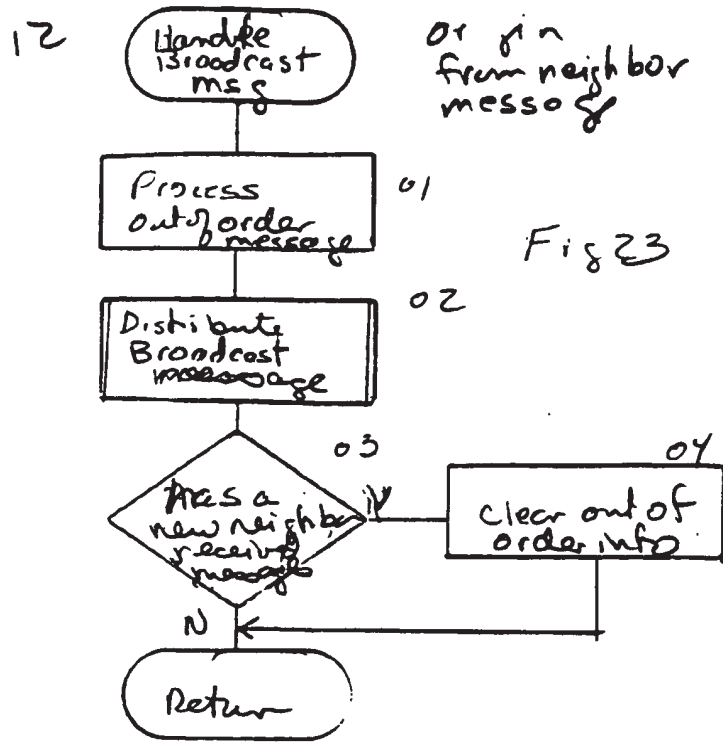 12
Handle
Broadcast
msg
Origin
from neighbor
message
Process
out of order
message
01
Fig 23
Distribute
Broadcast
message
02
Has a
new neighbor
received
message
03
Y
04
clear out of
order info
N
Return